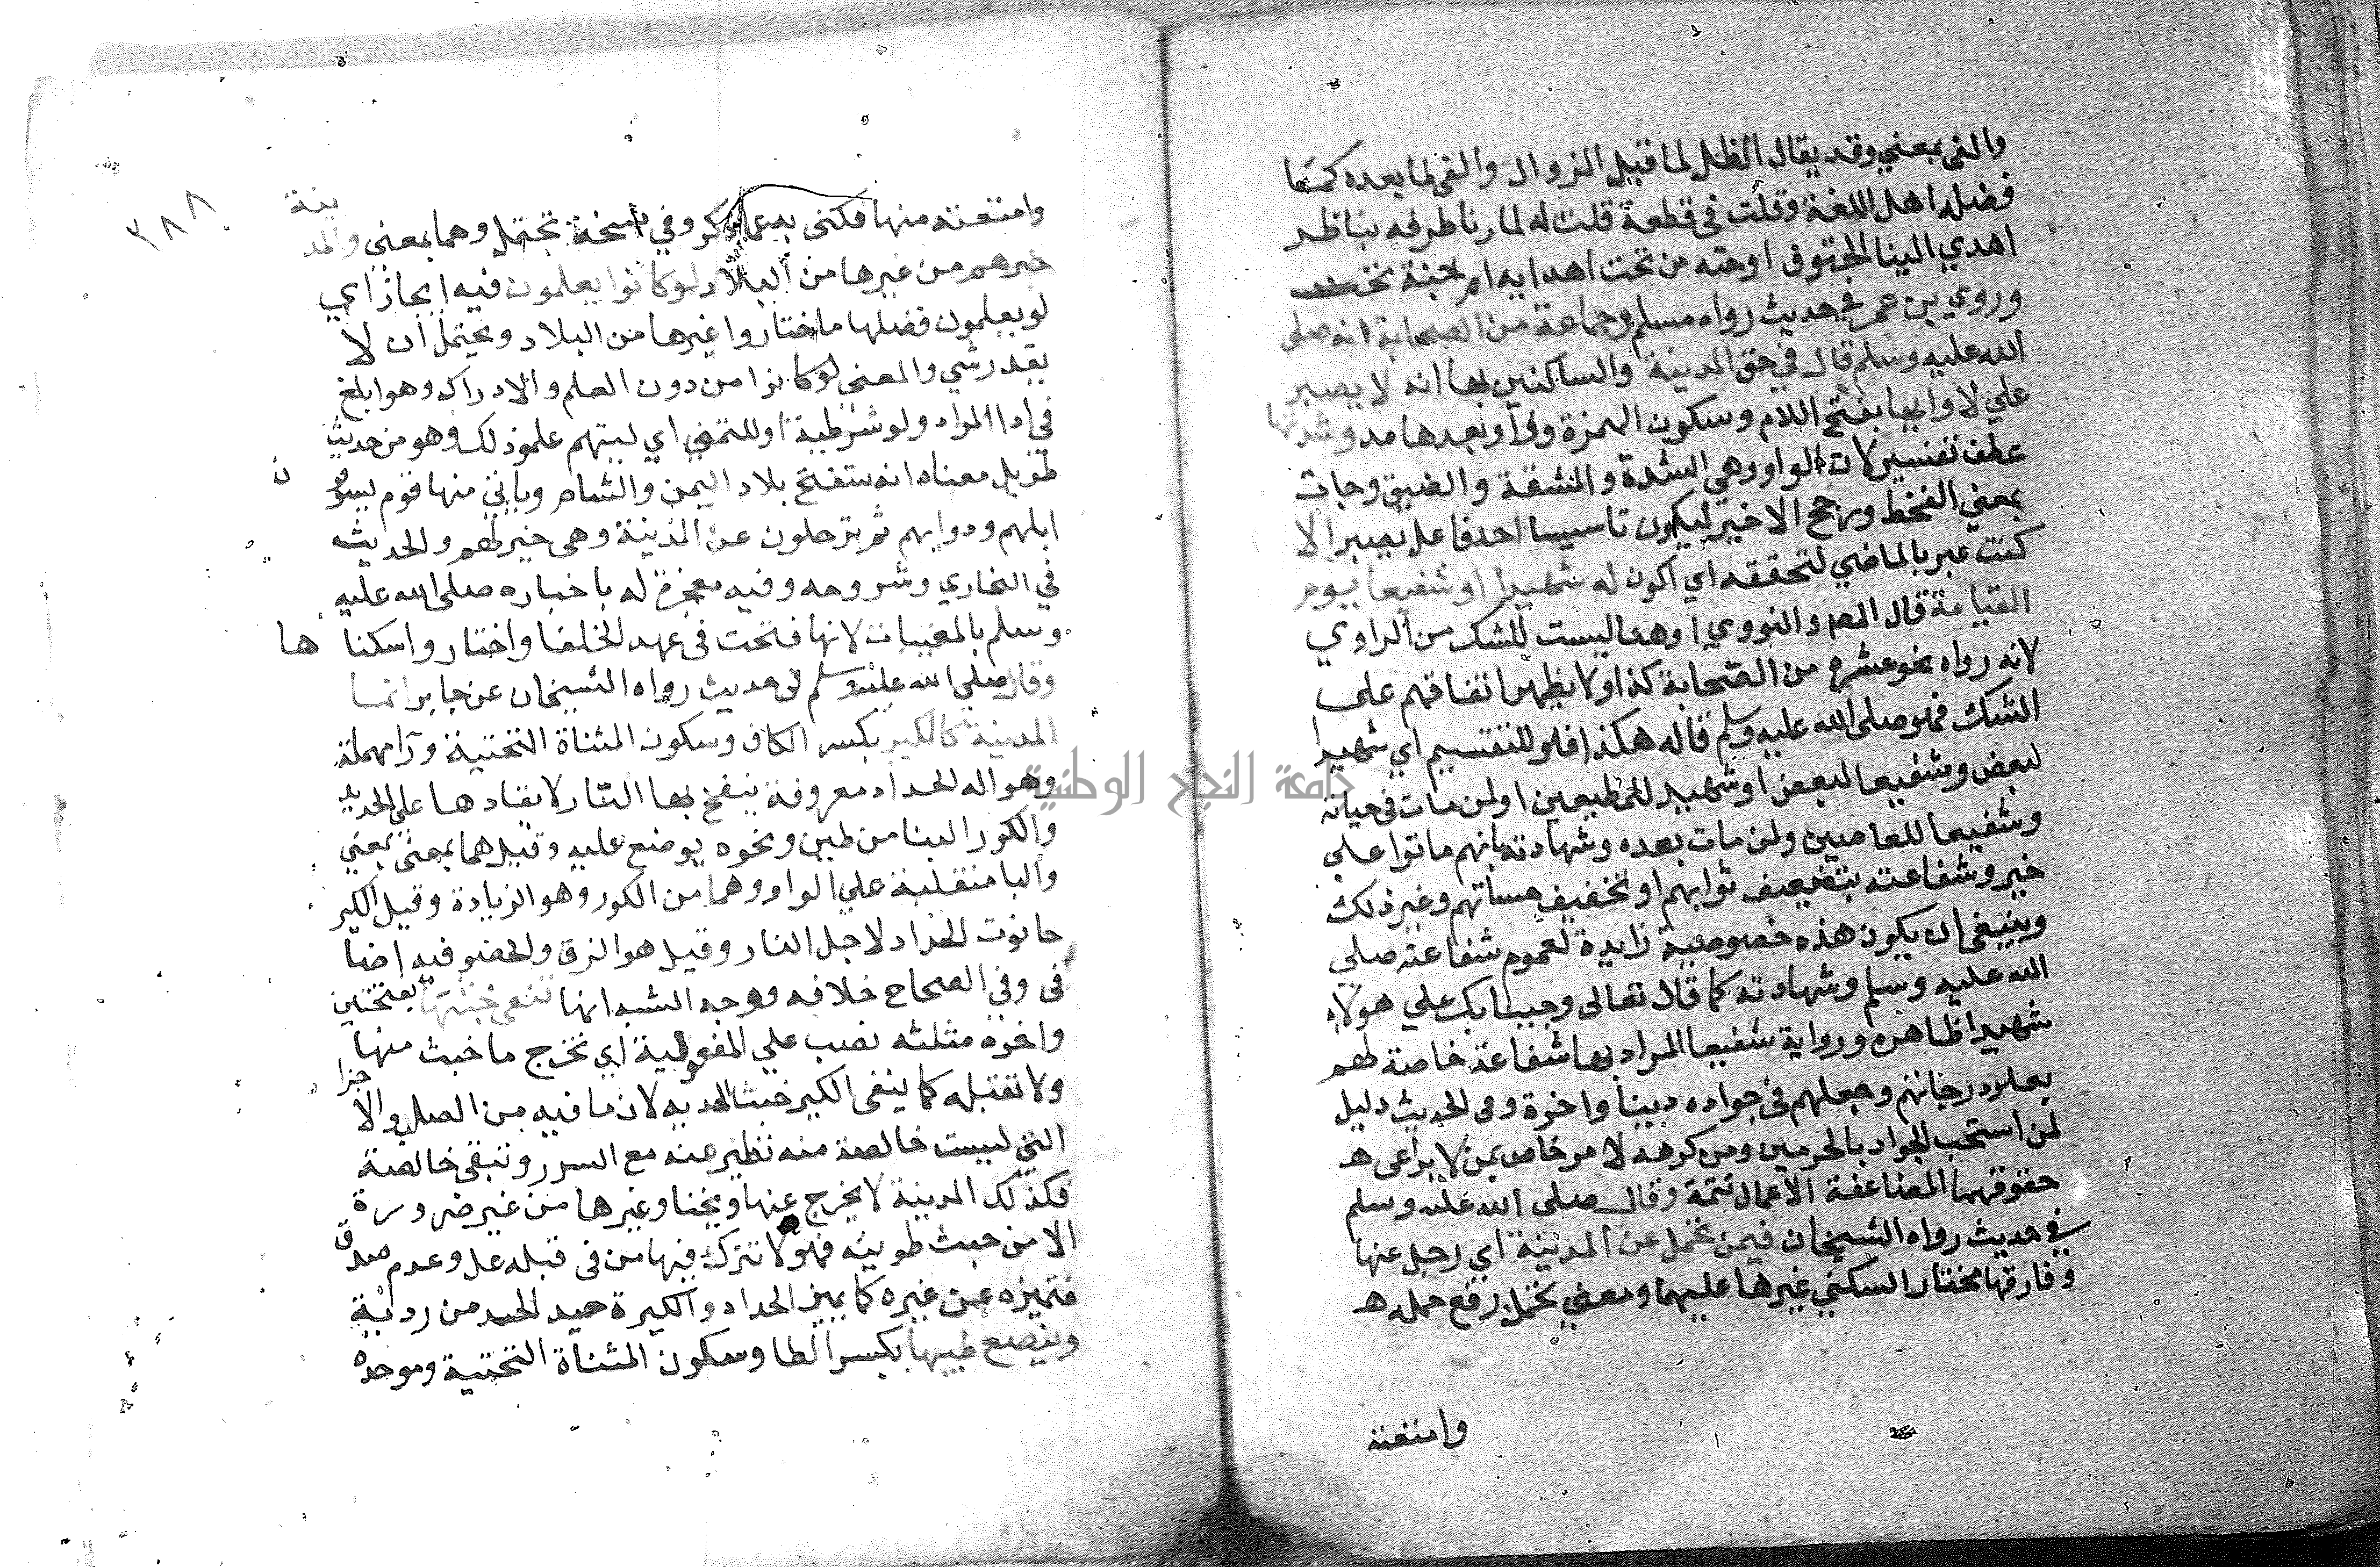 والفى بمعنى وقد يقال الظل لما قبل الزوال والفى لما بعده كما
فضله اهل اللغة وقلت فى قطعة قلت له لما رنا طرفه بناظر
اهدي الينا الحتوف اوحته من تحت اهدابه ام جنة تحت
وروي بن عمر في حديث رواه مسلم وجماعة من الصحابة انه صلى
الله عليه وسلم قال في حق المدينة والساكنين بها انه لا يصبر
علي لاوايها بفتح اللام وسكون الهمزة وواو وبعدها مد وشدتها
عطف تفسير لان الواو وهي الشدة والمشقة والضيق وجات
بمعني القحط ورجح الاخير ليكون تاسيسا احد فاعل يصبر الا
كنت عبر بالماضي لتحققه اي اكون له شهيدا او شفيعا يوم
القيامة قال المص والنووي او هنا ليست للشك من الراوي
لانه رواه نحو عشرة من الصحابة كذا ولا يظهر اتفاقهم على
الشك فهو صلى الله عليه وسلم قاله هكذا فاو للتقسيم اي شهيدا
لبعض وشفيعا لبعض او شهيد للمطيعين او لمن مات في حياته
وشفيعا للعاصين ولمن مات بعده وشهادته بانهم ماتوا علي
خير وشفاعته بتضعيف ثوابهم او تخفيف حسابهم وغير ذلك
وينبغى ان يكون هذه خصوصية زايدة لعموم شفاعته صلي
الله عليه وسلم وشهادته كما قال تعالى وجينا بك علي هولاء
شهيدا ظاهره ورواية شفيعا المراد بها شفاعة خاصة لهم
بعلو درجاتهم وجعلهم في جواده دينا واخرة وفى الحديث دليل
لمن استحب الجواد بالحرمين ومن كرهه لا مر خاص بمن لا يراعى
حقوقهما المضاعفة الاعمال تتمة وقال صلى الله عليه وسلم
في حديث رواه الشيخان فيمن تحمل عن المدينة اي رحل عنها
وفارقها مختار السكني غيرها عليهما ومعني تحمل رفع حمله
وامتعته
٣٨٨
وامتعته منها فكنى به عما ذكر وفي نسخة تحتمل وهما بمعنى والمدينة
خيرهم من غيرها من البلاد لو كانوا يعلمون فيه ايجاز اي
لو يعلمون فضلها ما اختاروا غيرها من البلاد ويحتمل ان لا
يقدر شي والمعنى لو كانوا من دون العلم والادراك وهو ابلغ
في ادا المراد ولو شرطية او للتمني اي ليتهم علمو ذلك وهو من حديث
طويل معناه انه ستفتح بلاد اليمن والشام وياتي منها قوم يسوقون
ابلهم ودوابهم ثم يترحلون عن المدينة وهى خير لهم والحديث
في البخاري وشروحه وفيه معجزة له باخباره صلى الله عليه
وسلم بالمغيبات لانها فتحت فى عهد الخلفا واختار واسكناها
وقال صلى الله عليه وسلم في حديث رواه الشيخان عن جابر انما
المدينة كالكير بكسر الكاف وسكون المثناة التحتية ورا مهملة
وهو اله الحداد معروفة ينفخ بها النار لايقادها على الحديد
والكور البنا من طين ونحوه يوضع عليه وقيل هما بمعنى بمعني
واليا منقلبة علي الواو وهما من الكور وهو الزيادة وقيل الكير
حانوت الحداد لاجل النار وقيل هو الزق
فى وفي الصحاح خلافه ووجه الشبه انها تنفى خبثها بفتحتين
واخره مثلثه نصب علي المفعولية اي تخرج ما خبث منها
ولا تقبله كما ينفى الكير خبث الحديد لان ما فيه من الصلب والاجزا
التي ليست خالصة منه تطير عنه مع السرر وتبقى خالصة
فكذلك المدينة لا يخرج عنها غيرها من غير ضرورة
الا من خبث طويته فهو لا تترك فيها من فى قبله غل وعدم صدق
فتميزه عن غيره كما يميز الحداد والكيرة جيد الحيد من رديه
وينصع طيبها بكسر الطا وسكون المثناة التحتية وموحده
جامعة النجاح الوطنية